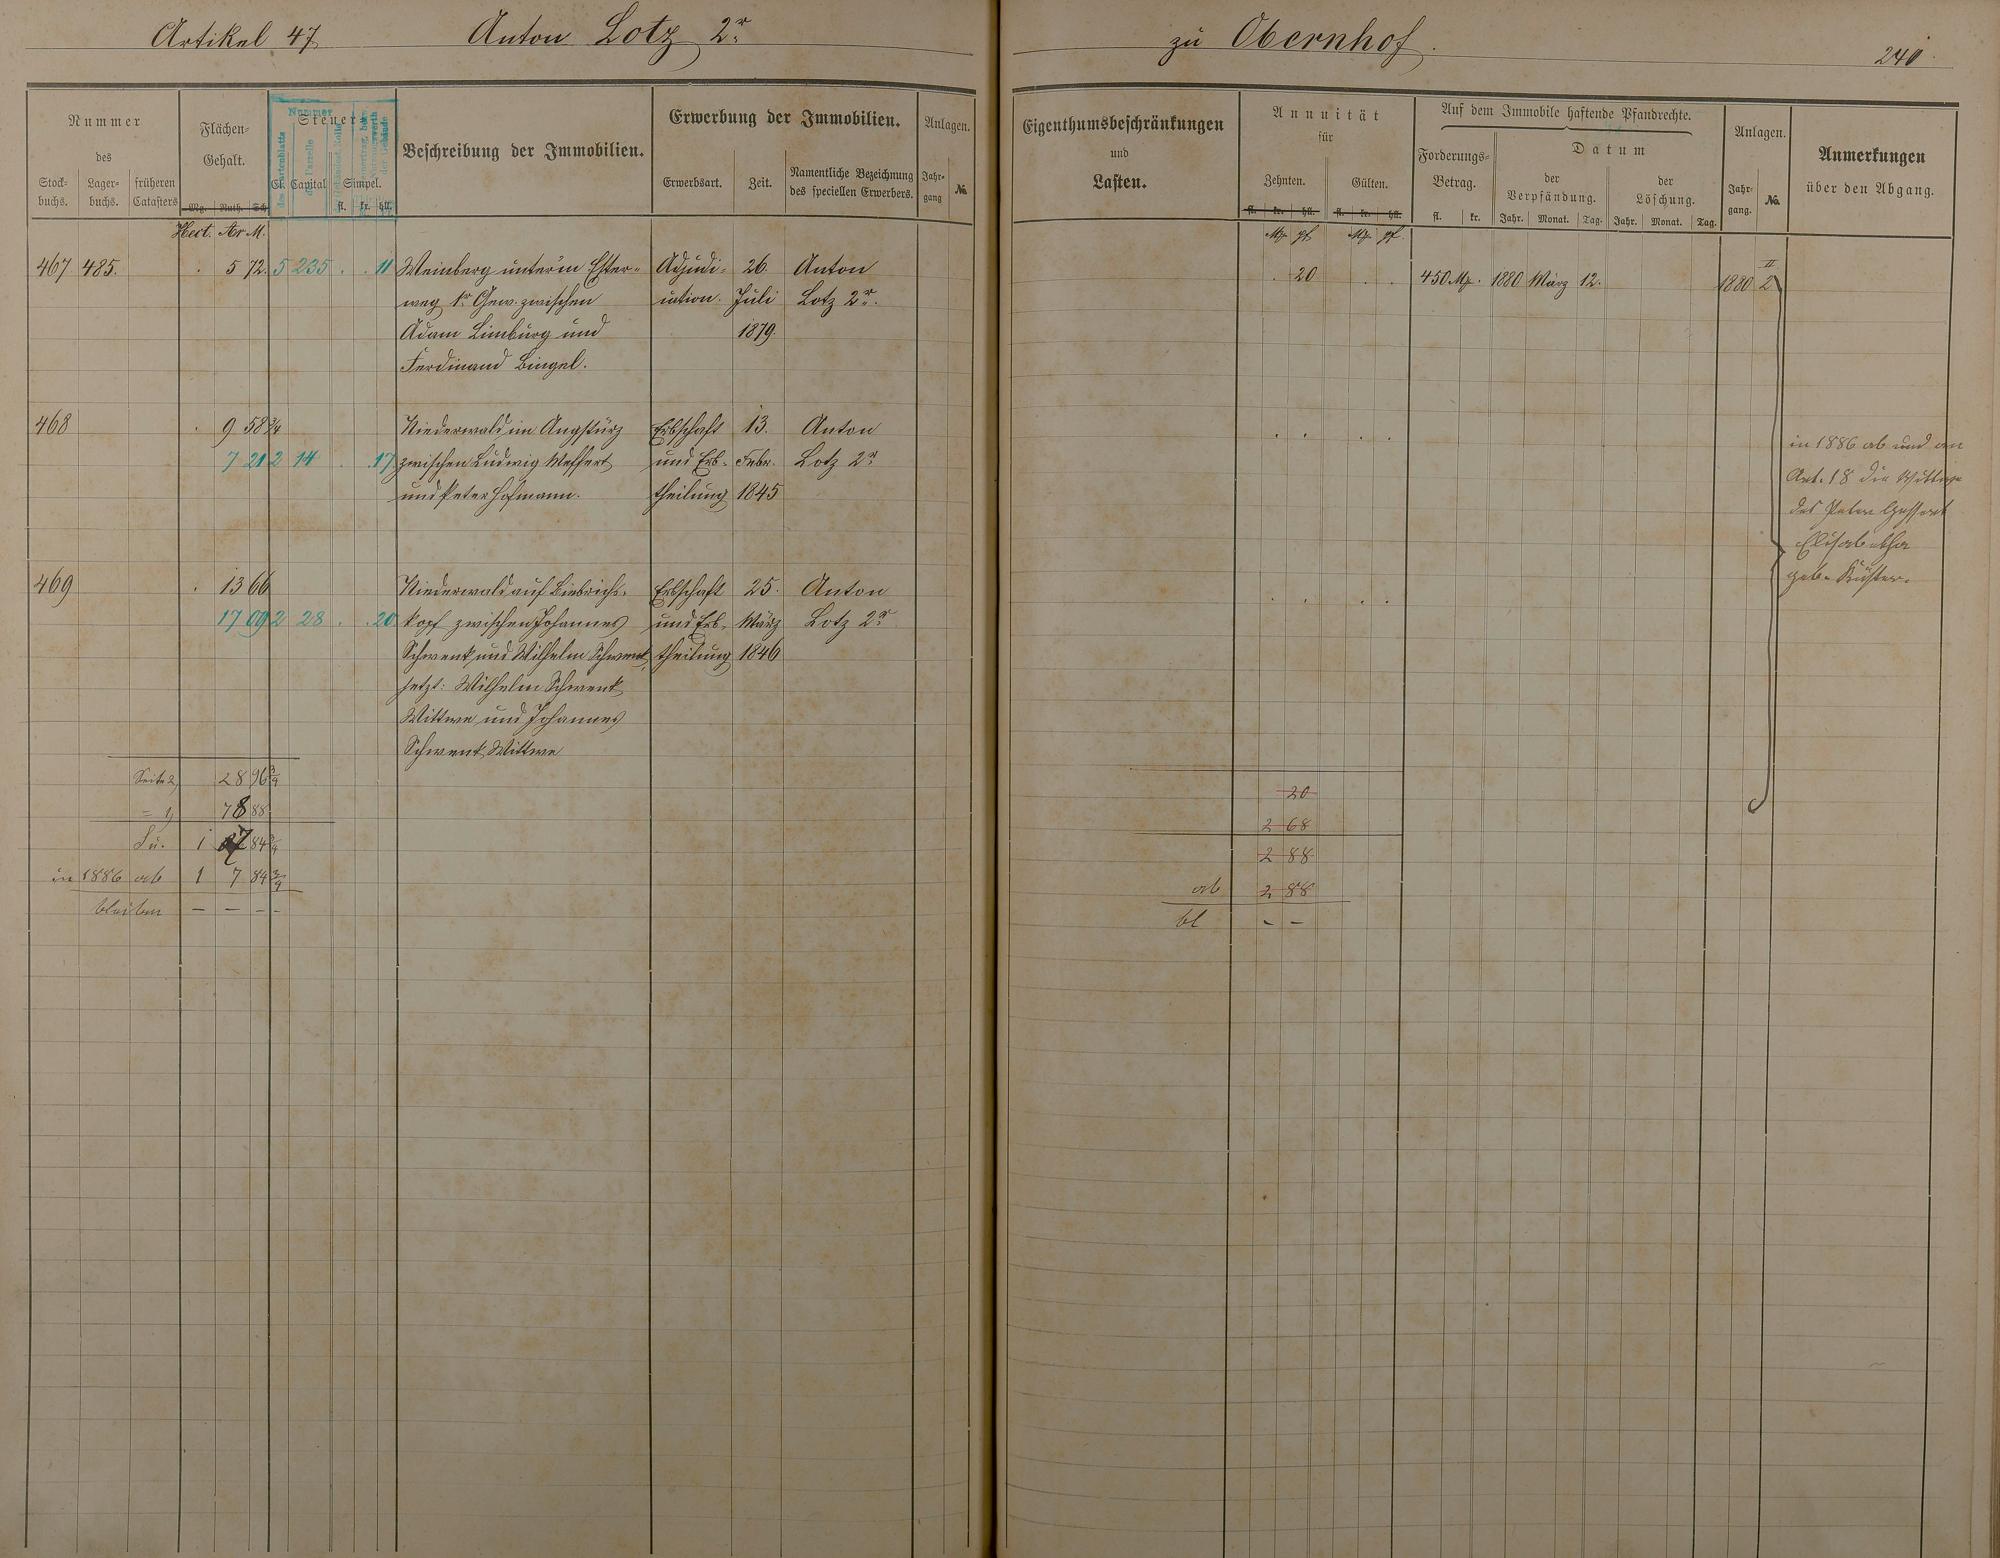 Artikel 47 Anton Lotz 2r zu Obernhof. 240
Nummer
des
Stock-buchs. Lager-buchs. früheren Catasters
Flächen-Gehalt.
Mg. Ruth. Sch.
Steuer
Cl. Capital Simpel.
fl. kr. hll.
Nummer
des Kartenblatts
der Parzelle
Beschreibung der Immobilien.
Erwerbung der Immobilien.
Erwerbsart. Zeit. Namentliche Bezeichnung des speciellen Erwerbers.
Anlagen.
Jahr-gang No.
Eigenthumsbeschränkungen
und
Lasten.
Annuität
für
Zehnten. Gülten.
fl. kr. hll. fl. kr. hll.
Auf dem Immobile haftende Pfandrechte.
Forderungs-Betrag.
fl. kr.
Datum
der Verpfändung. der Löschung.
Jahr. Monat. Tag. Jahr. Monat. Tag.
Anlagen.
Jahr-gang. No.
Anmerkungen
über den Abgang.
Hect. Ar M. M. pf. M. pf.
467 485. . 5 72. 5 235 . . 11 Weinberg unter'm Ester- Adjudi- 26. Anton . 20 . . 450 M. 1880 März 12. 1880 II 2
weg 1r Gew. zwischen cation. Juli Lotz 2r.
Adam Limburg und 1879.
Ferdinand Bingel.
468 . 9 58 3/4 Niederwald im Angstürz Erbschaft 13. Anton . . . .
7 21 2 14 . . 17 zwischen Ludwig und Erb- Febr. Lotz 2r
und Peter Hofmann. theilung 1845
in 1886 ab und an
Art. 18 die Wittwe
des Peter
Elisabetha
geb. Küster.
469 . 13 66 Niederwald auf Biebrichs- Erbschaft 25. Anton . . . .
17 09 2 28 . . 20 kopf zwischen Johannes und Erb- März Lotz 2r
Schwenk und Wilhelm Schwenk, theilung 1846
jetzt: Wilhelm Schwenk
Wittwe und Johannes
Schwenk Wittwe
Seite 2, 28 96 3/4 20
= 1, 78 88 2 68
Su. 1 07 84 3/4 2 88
in 1886 ab 1 7 84 3/4 ab 2 88
bleiben — — — - bl - -